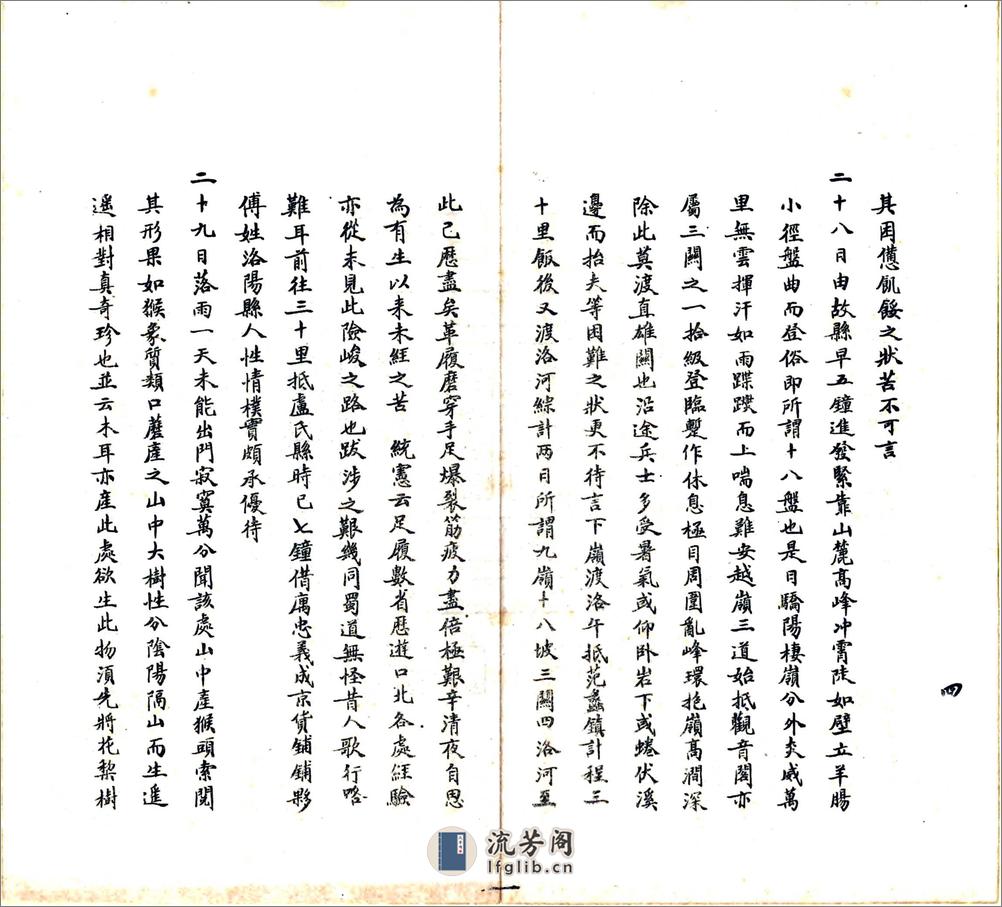 其困憊飢餒之狀苦不可言
二十八日由故縣早五鐘進發緊靠山麓高峰冲霄陡如壁立羊腸
小徑盤曲而登俗即所謂十八盤也是日驕陽棲嶺分外炎威萬
里無雲揮汗如雨蹀躞而上喘息難安越嶺三道始抵觀音閣亦
屬三關之一拾級登臨蹔作休息極目周圍亂峰環抱嶺高澗深
除此莫渡直雄關也沿途兵士多受暑氣或仰卧岩下或蜷伏溪
邊而抬夫等困難之狀更不待言下嶺渡洛午抵范蠡鎮計程三
十里飯後又渡洛河綜計两日所謂九嶺十八坡三關四洛河至
此已歷盡矣革履磨穿手足爆裂筋疲力盡倍極艱辛清夜自思
為有生以来未經之苦 統憲云足履數省歷遊口北各處經驗
亦從未見此險峻之路也跋涉之艱幾同蜀道無怪昔人歌行路
難耳前往三十里抵盧氏縣時已七鐘借寓忠義成京貨鋪鋪夥
傅姓洛陽縣人性情樸實頗承優待
二十九日落雨一天未能出門寂寞萬分聞該處山中產猴頭索閱
其形果如猴象質類口蘑產之山中大樹性分陰陽隔山而生遥
遥相對真奇珍也並云木耳亦產此處欲生此物須先將花梨樹
四
流芳阁
lfglib.cn